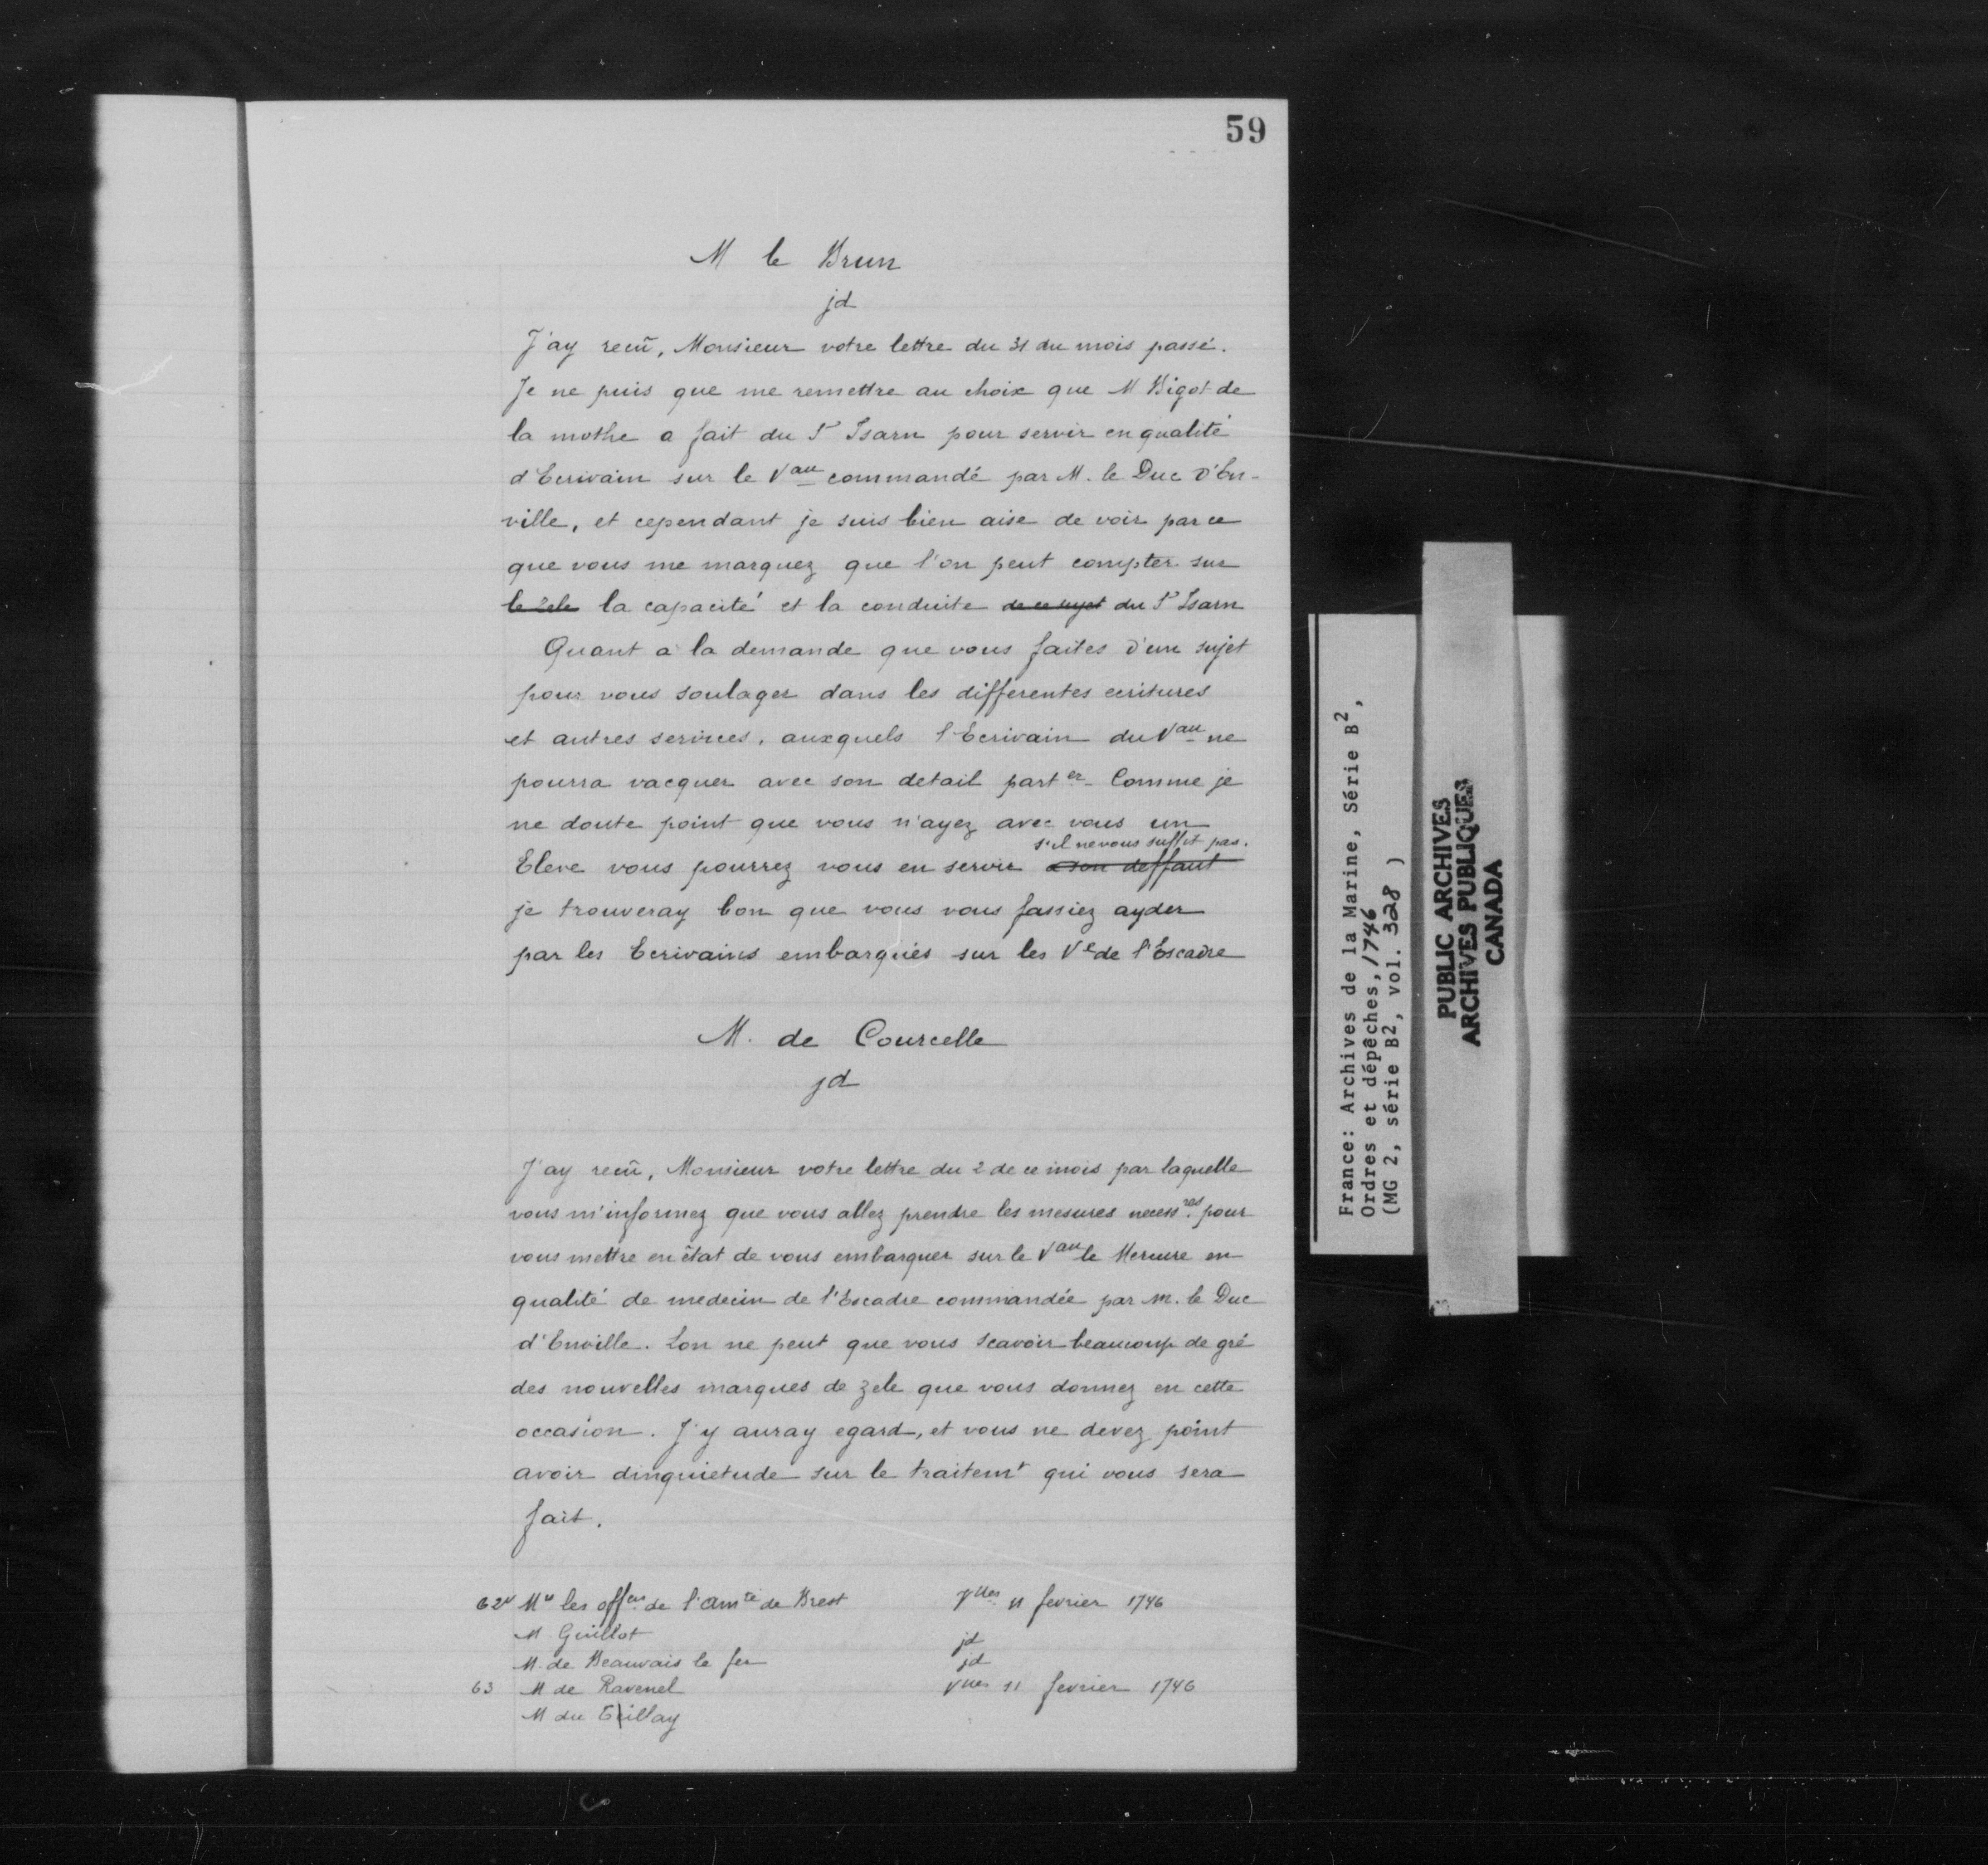 59
M le Brun
jd
J'ay reçû, Monsieur votre lettre du 31 du mois passé.
Je ne puis que me remettre au choix que M Bigot de
la mothe a fait du Sr Isarn pour servir en qualité
d'Ecrivain sur le Vau commandé par M. le Duc d'En-
ville, et cependant je suis bien aise de voir par ce
que vous me marquez que l'on peut compter sur
le zele la capacité et la conduite de ce sujet du Sr Isarn
Quant a la demande que vous faites d'un sujet
pour vous soulager dans les differentes ecritures
et autres services, auxquels l'Ecrivain du Vau ne
pourra vacquer avec son detail parter. Comme je
ne doute point que vous n'ayez avec vous un
s'il ne vous suffit pas.
Eleve vous pourrez vous en servir a son deffaut
je trouveray bon que vous vous fassiez ayder
par les Ecrivains embarqués sur les Vx de l'Escadre
M. de Courcelle
jd
J'ay reçû, Monsieur votre lettre du 2 de ce mois par laquelle
vous m'informez que vous allez prendre les mesures necessres pour
vous mettre en état de vous embarquer sur le Vau le Mercure en
qualité de medecin de l'Escadre commandée par M. le Duc
d'Enville. Lon ne peut que vous scavoir beaucoup de gré
des nouvelles marques de zele que vous donnez en cette
occasion. J'y auray egard, et vous ne devez point
avoir dinquietude sur le traitemt qui vous sera
fait.
62v Mrs les offers de l'amté de Brest Vlles 11 fevrier 1746
M Guillot jd
M. de Beauvais le fer jd
63 M de Ravenel Vlles 11 fevrier 1746
M du
France: Archives de la Marine, Série B2,
Ordres et dépêches, 1746
(MG 2, série B2, vol. 328 )
PUBLIC ARCHIVES
ARCHIVES PUBLIQUES
CANADA